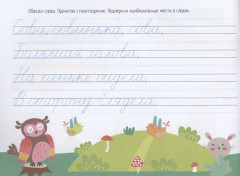 Обведи слова. Прочитай стихотворение. Подчеркни ошибкоопасные места в словах.
Сова, совинька, сова,
Большая голова,
На пеньке сидела,
В сторону глядела.